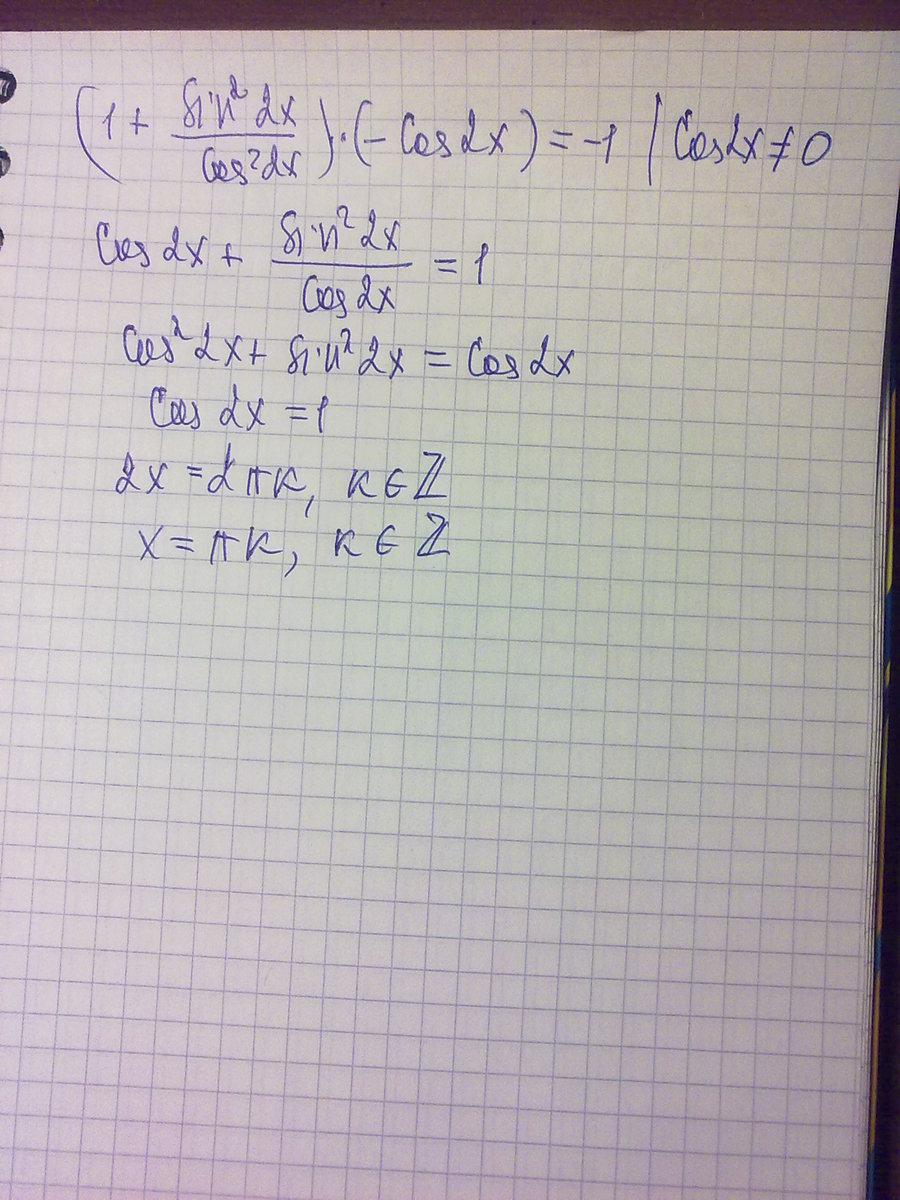 (1 + sin²2x / cos²2x)·(-cos2x) = -1 | cos2x ≠ 0
cos2x + sin²2x / cos2x = 1
cos²2x + sin²2x = cos2x
cos2x = 1
2x = 2πк, к ∈ ℤ
x = πк, к ∈ ℤ